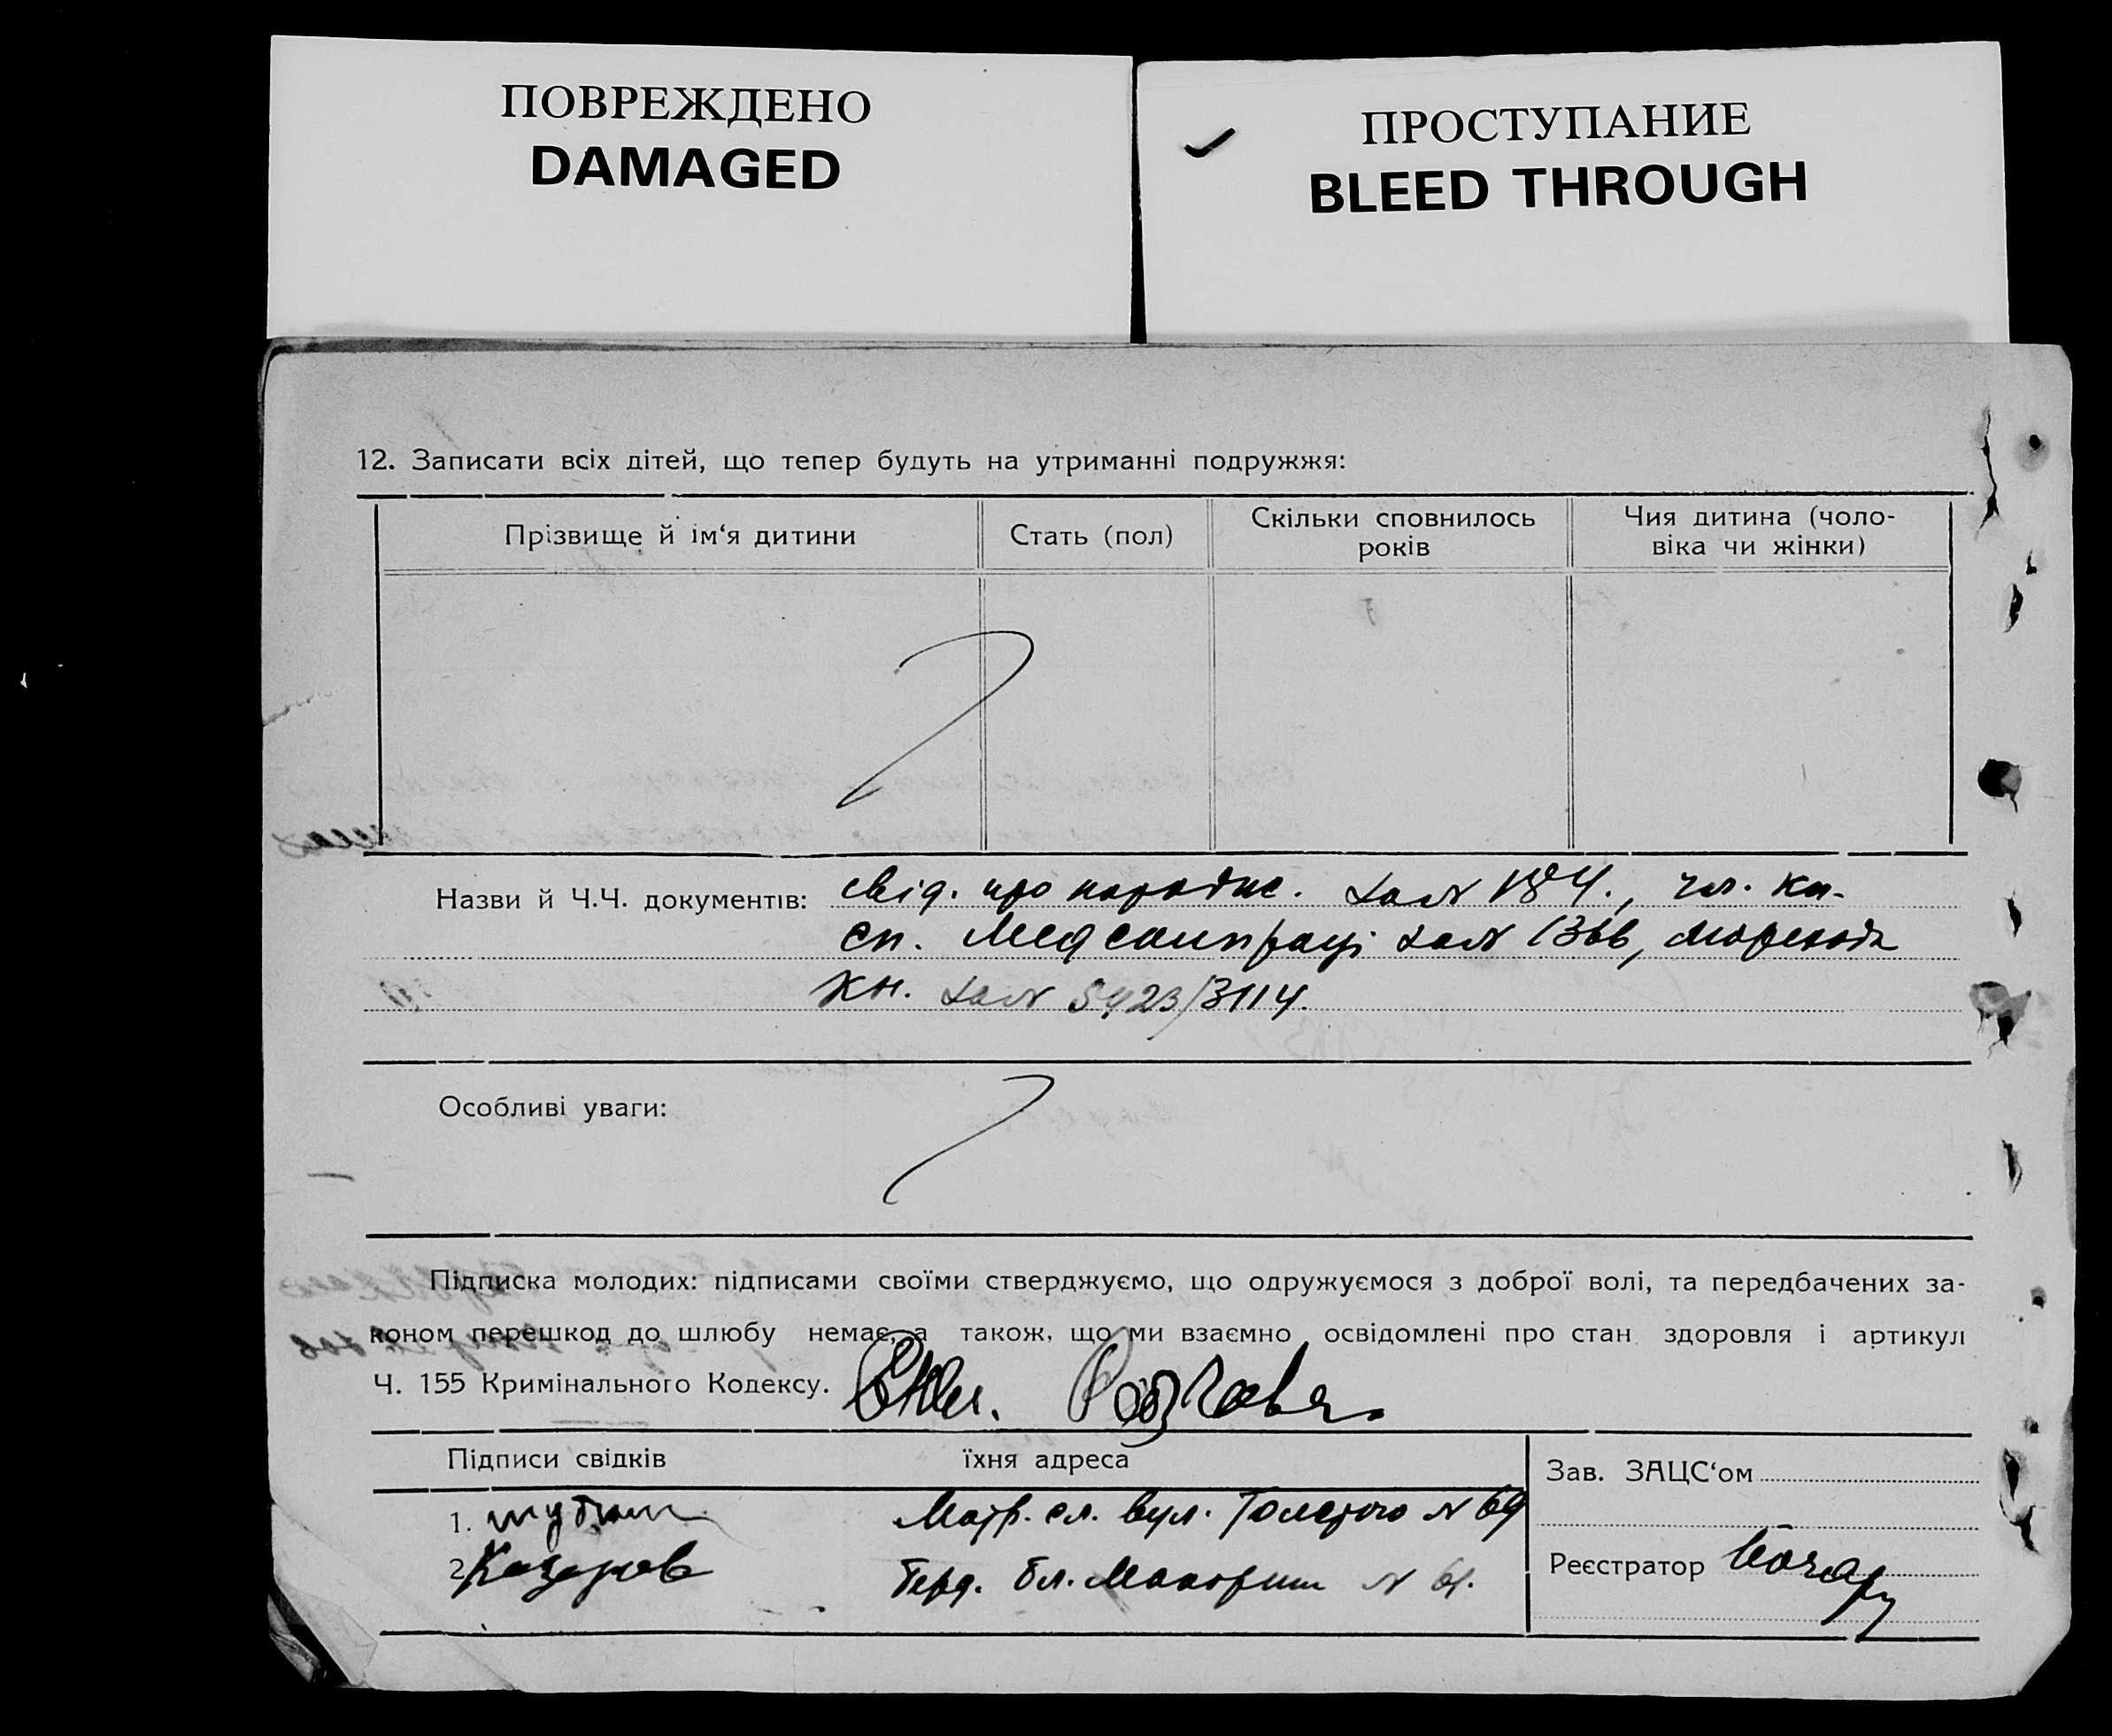 ПОВРЕЖДЕНО
DAMAGED
ПРОСТУПАНИЕ
BLEED THROUGH
12. Записати всіх дітей, що тепер будуть на утриманні подружжя:
Прізвище й ім‘я дитини
Стать (пол)
Скільки сповнилось
років
Чия дитина (чоло-
віка чи жінки)
Назви й Ч.Ч. документів: свід. про народже. за № 184., чл. кн.
сп. Медсанпраці за № 1366,
кн. за № 5423/3114.
Особливі уваги:
Підписка молодих: підписами своїми стверджуємо, що одружуємося з доброї волі, та передбачених за-
коном перешкод до шлюбу немає, а також, що ми взаємно освідомлені про стан здоровля і артикул
Ч. 155 Кримінального Кодексу.
Підписи свідків
їхня адреса
1.
Матр. сл. вул. Толстого № 69
2.
№ 61.
Зав. ЗАЦС‘ом
Реєстратор